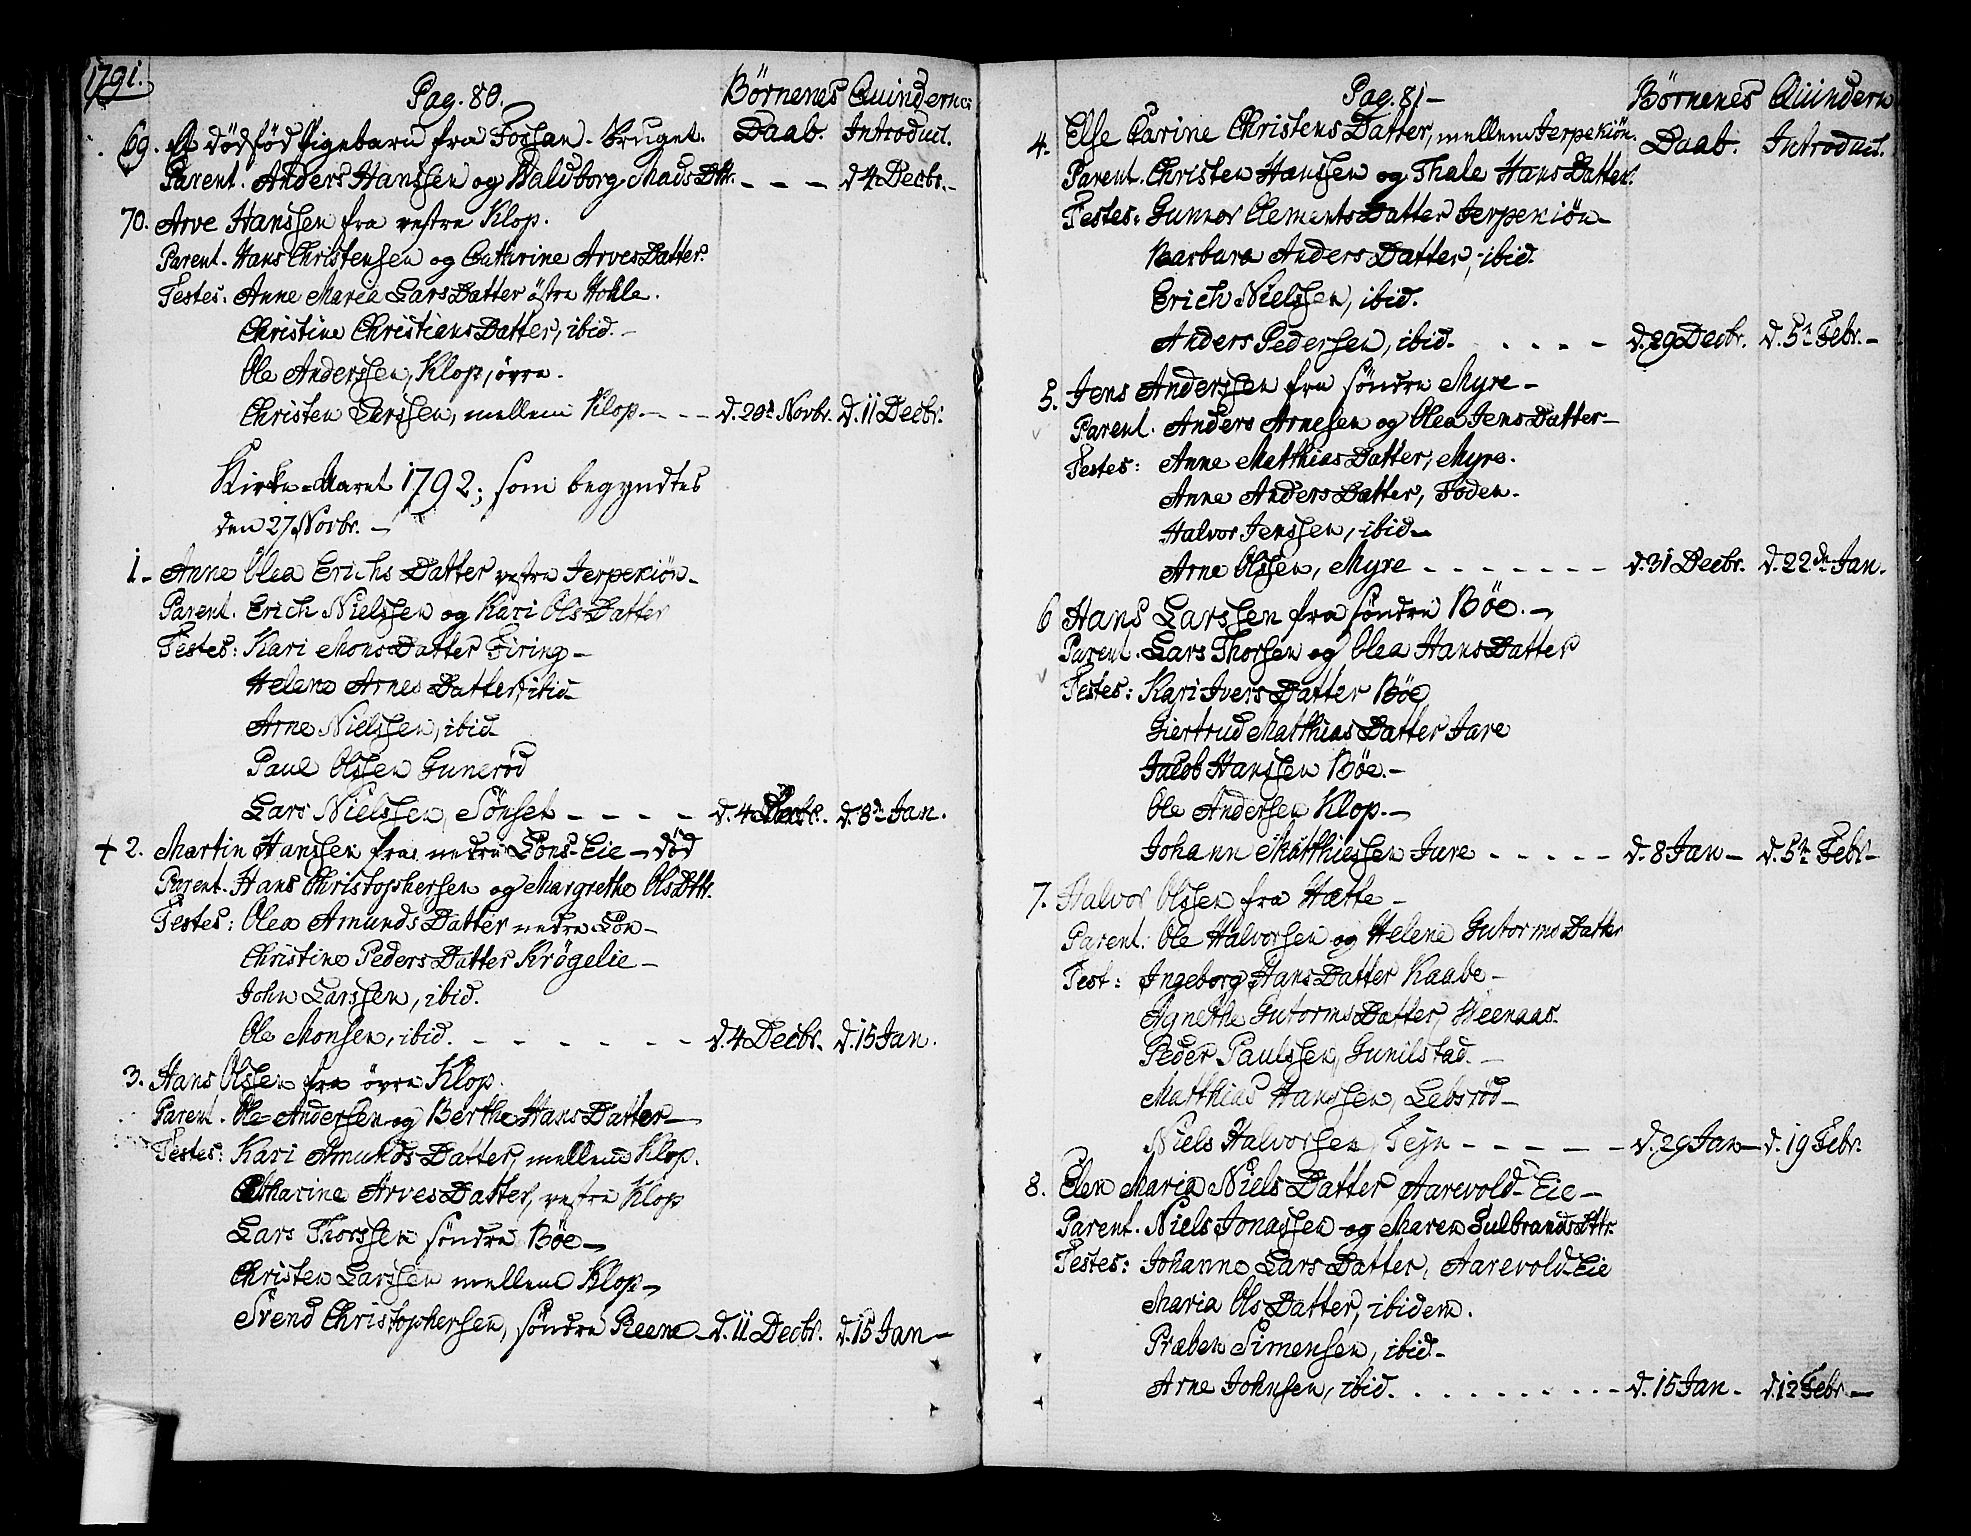 1791.
Pag. 80.
Børnenes Daab.
Quindernes Introduct.
69. Et dødfød Pigebarn fra Fossan-bruget.
Parent. Anders Hanssen og Waldborg Mads Dttr. - - - d 4 Decbr. -
70. Arve Hanssen fra vestre Klop.
Parent. Hans Christensen og Cathrine Arves Datter.
Testes: Anne Maria Lars Datter østre Hohle.
Christine Christians Datter, ibid. -
Ole Anderssen, Klop, øvre.
Christen Larssen, mellem Klop. - - - d. 20d Novbr. d. 11 Decbr.
Kirke-Aaret 1792; som begyndtes
den 27 Novbr. -
1. Anne Olea Erichs Datter vestre Jerpekiøn -
Parent. Erich Nielssen og Kari Ols Datter
Testes: Kari Mons Datter Eiring -
Helene Arnes Datter, ibid -
Arne Nielssen, ibid.
Paul Olssen Gunerød
Lars Nielssen, Sønset - - - - d. 4 Decbr. d. 8de Jan.
+ 2. Martin Hanssen fra nedre Løns-Eie - død
Parent. Hans Christophersen og Margrethe Ols Dttr.
Testes: Olea Amunds Datter nedre Løn -
Christine Peders Datter Krøgelie -
John Larssen, ibid.
Ole Monsen, ibid. - - - - - - - d. 4 Decbr. d. 15 Jan.
3. Hans Olssen fra øvre Klop.
Parent. Ole Andersen og Berthe Hans Datter -
Testes: Kari Amunds Datter, mellem Klop.
Catharine Arves Datter, vestre Klop
Lars Thorssen søndre Bøe -
Christen Larssen mellem Klop -
Svend Christophersen, søndre Reene - d. 11 Decbr. d. 15 Jan -
Pag. 81 -
Børnenes Daab.
Quindern Introduct.
4. Else Carine Christens Datter, mellem Jerpekiøn.
Parent. Christen Hanssen og Thale Hans Datter.
Testes: Gunnor Clements Datter Jerpekiøn -
Barbara Anders Datter, ibid.
Erich Nielssen, ibid.
Anders Pedersen, ibid. - - - - d. 29 Decbr. d. 5te Febr. -
5. Jens Anderssen fra søndre Myre -
Parent. Anders Arnesen og Olea Jens Datter -
Testes: Anne Matthias Datter, Myre.
Anne Anders Datter, Foden.
Halvor Jenssen, ibid -
Arne Olssen, Myre - - - - - - - d. 31 Decbr. d. 22de Jan.
6 Hans Larssen fra søndre Bøe. -
Parent. Lars Thorsen og Olea Hans Datter
Testes: Kari Ivers Datter Bøe
Giertrud Matthias Datter Jare
Jacob Hanssen Bøe. -
Ole Andersen Klop. -
Johann Matthiessen Jare - - - - - d. 8 Jan - d. 5te Febr -
7. Halvor Olssen fra Hætte -
Parent. Ole Halvorsen og Helene Gutorms Datter
Test: Ingeborg Hans Datter Kaabe -
Agnethe Gutorms Datter, Heenaas.
Peder Paulssen, Gunilstad. -
Matthias Hanssen, Lebsrød -
Niels Halvorssen, Tejn - - - - - d. 29 Jan - d. 19 Febr.
8. Elen Maria Niels Datter Aarevold-Eie -
Parent. Niels Jonassen og Maren Gulbrands Dttr.
Testes: Johanne Lars Datter, Aarevold-Eie
Maria Ols Datter, ibidem.
Præben Simensen, ibid -
Arne Johnsen, ibid. . . . . . . . . - d. 15 Jan - d. 12 Febr -